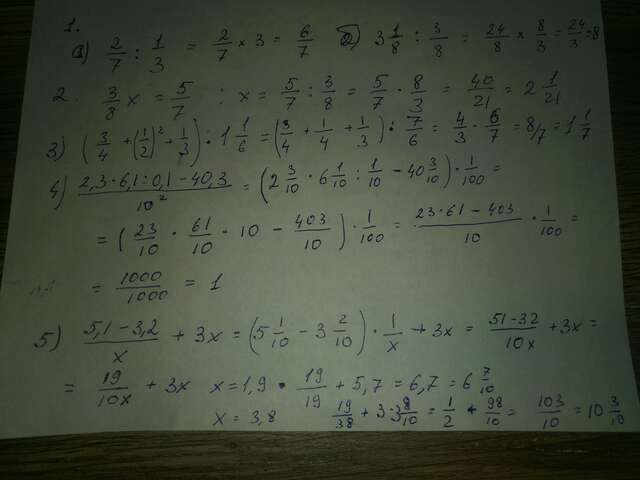 1.
а) 2/7 : 1/3 = 2/7 × 3 = 6/7 б) 3 1/8 : 3/8 = 24/8 × 8/3 = 24/3 = 8
2. 3/8 x = 5/7 ; x = 5/7 : 3/8 = 5/7 · 8/3 = 40/21 = 2 1/21
3) (3/4 + (1/2)² + 1/3) : 1 1/6 = (3/4 + 1/4 + 1/3) : 7/6 = 4/3 · 6/7 = 8/7 = 1 1/7
4) (2,3 · 6,1 : 0,1 − 40,3)/10² = (2 3/10 · 6 1/10 : 1/10 − 40 3/10) · 1/100 =
= (23/10 · 61/10 · 10 − 403/10) · 1/100 = (23 · 61 − 403)/10 · 1/100 =
= 1000/1000 = 1
5) (5,1 − 3,2)/x + 3x = (5 1/10 − 3 2/10) · 1/x + 3x = (51 − 32)/10x + 3x =
= 19/10x + 3x x = 1,9 · 19/19 + 5,7 = 6,7 = 6 7/10
x = 3,8 19/38 + 3 · 3 8/10 = 1/2 + 98/10 = 103/10 = 10 3/10